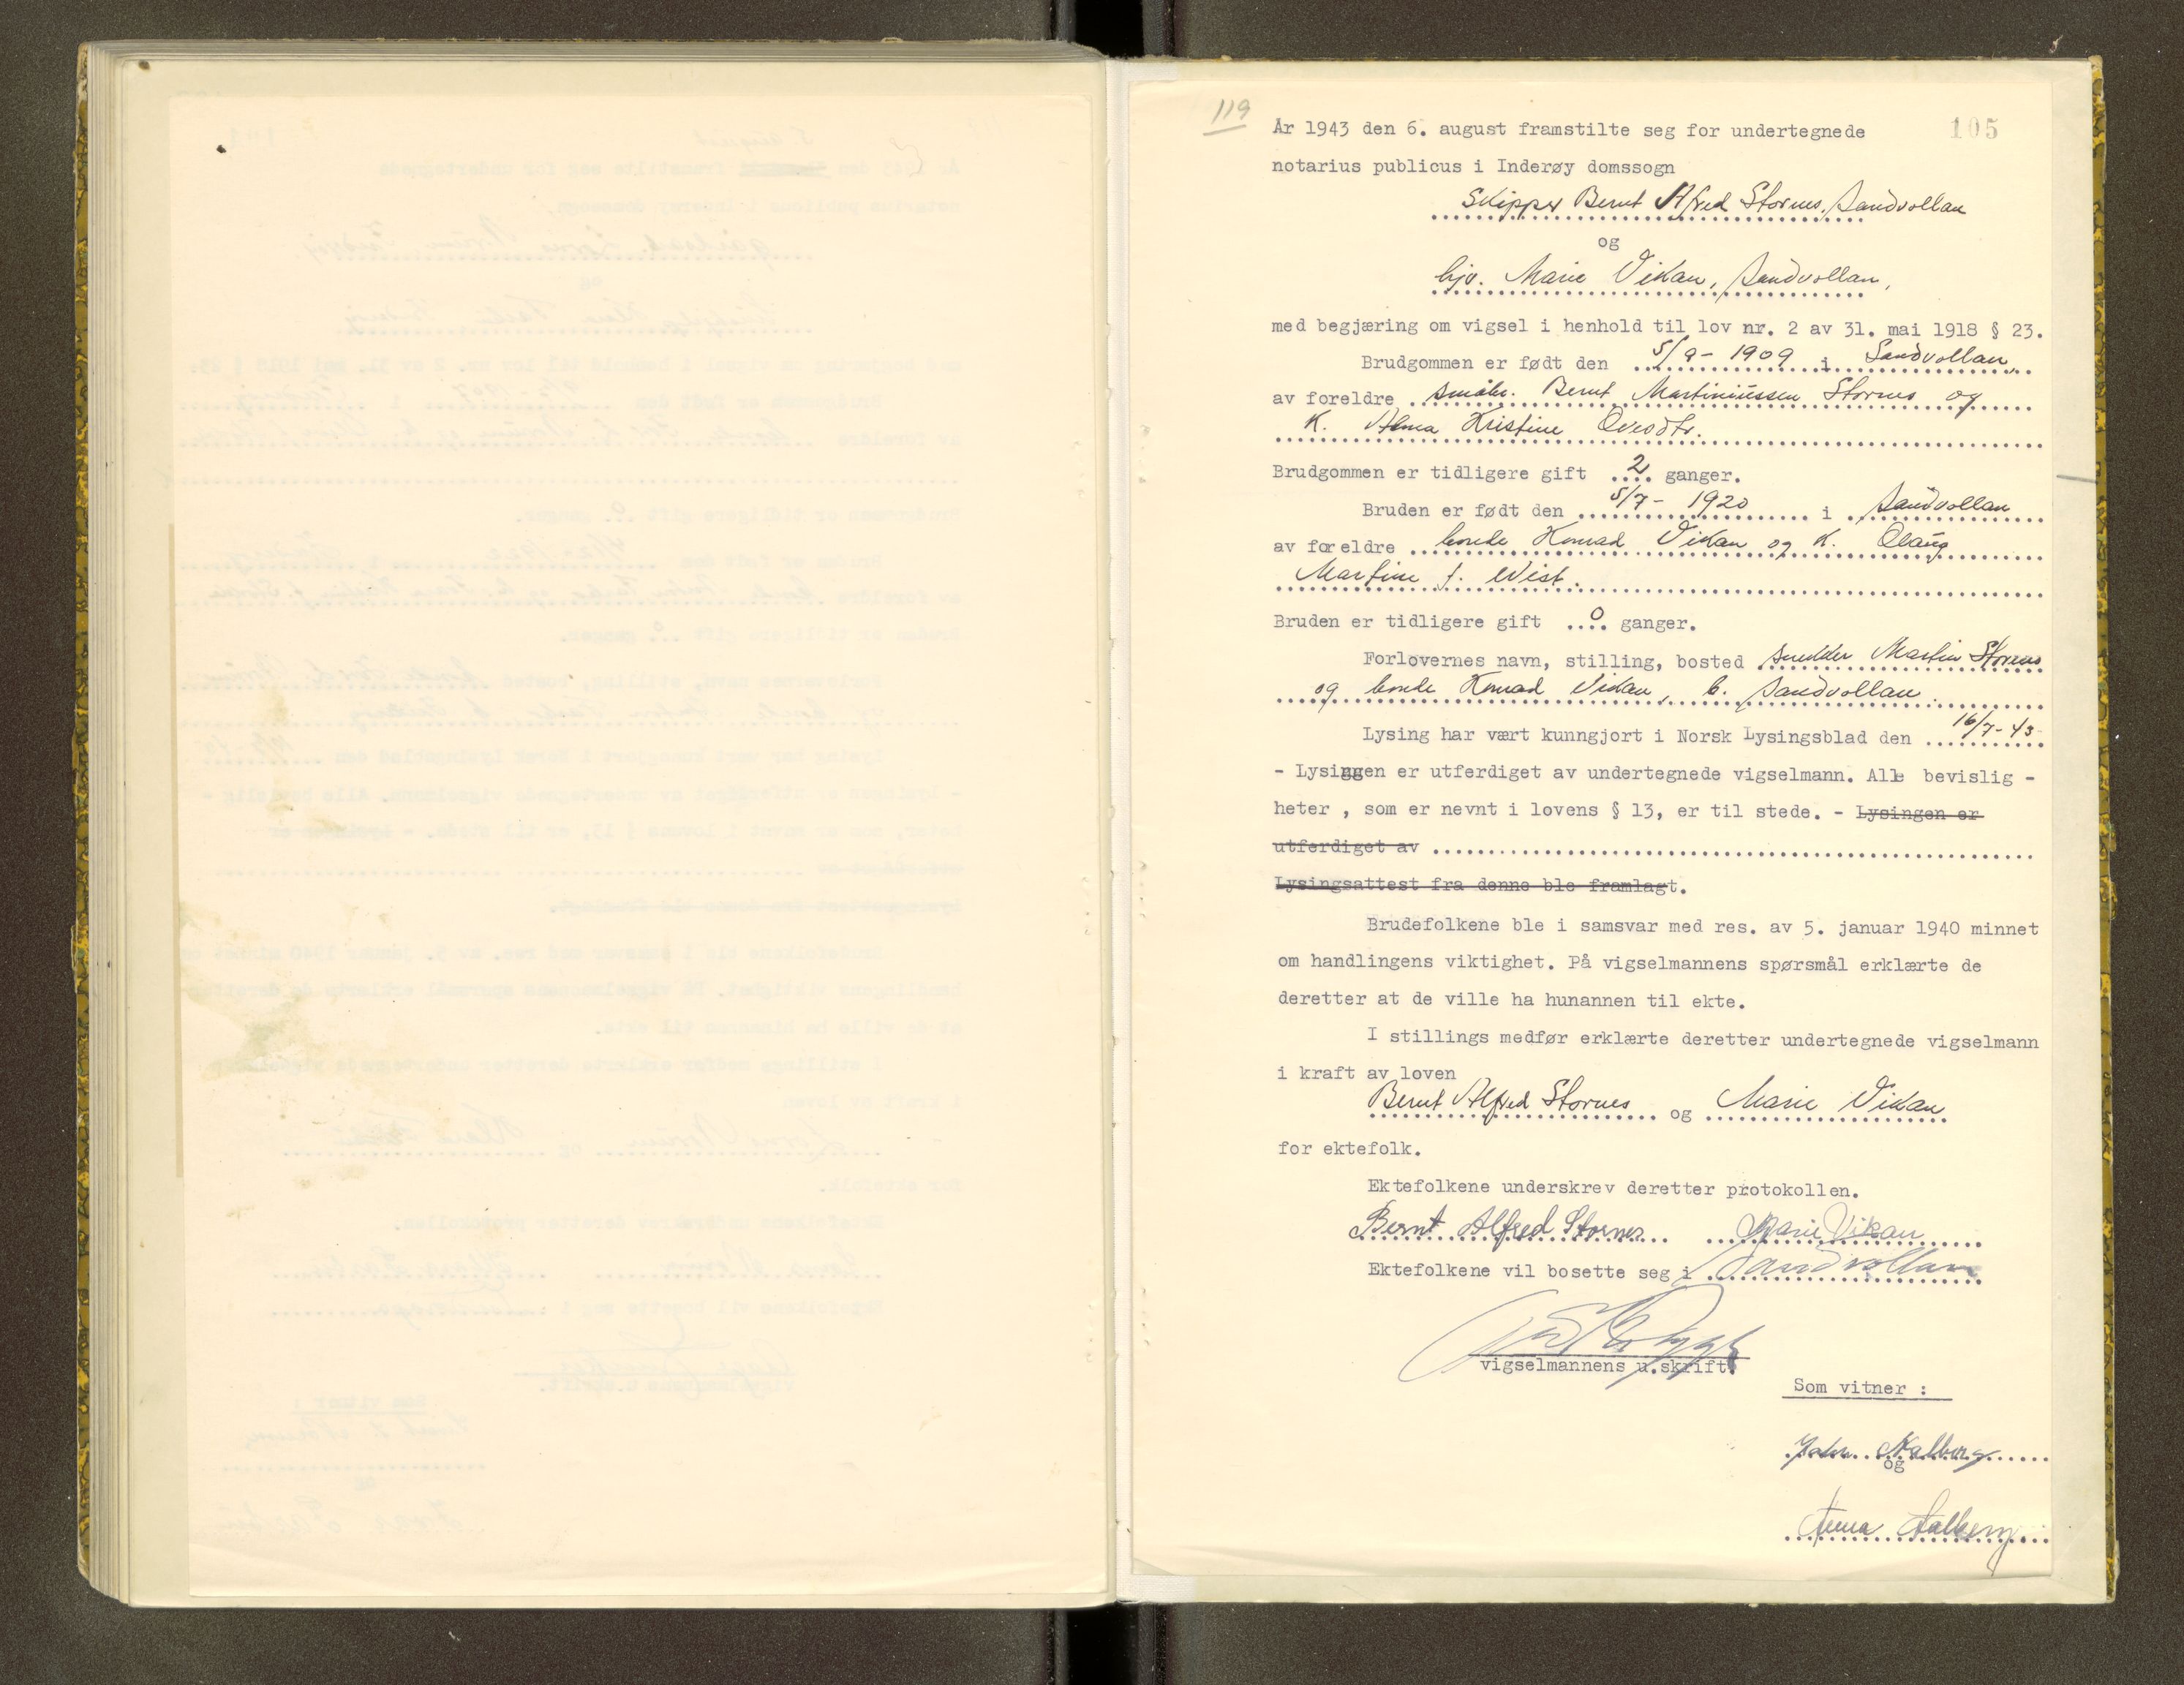 119
105
År 1943 den 6. august framstilte seg for undertegnede
notarius publicus i Inderøy domssogn
Skipper Bernt Alfred Stornes, Sandvollan
og
hjv. Marie Vikan, Sandvollan,
med begjæring om vigsel i henhold til lov nr. 2 av 31. mai 1918 § 23.
Brudgommen er født den 5/9 - 1909 i Sandvollan,
av foreldre småbr. Bernt Martiniussen Stornes og
K. Alma Kristine
Brudgommen er tidligere gift 2 ganger.
Bruden er født den 5/7 - 1920 i Sandvollan
av foreldre bonde Konrad Vikan og K. Olaug
Martine f. Wist.
Bruden er tidligere gift 0 ganger.
Forlovernes navn, stilling, bosted snekker Martin Stornes
og bonde Konrad Vikan, b. Sandvollan.
Lysing har vært kunngjort i Norsk Lysingsblad den 16/7-43
- Lysingen er utferdiget av undertegnede vigselmann. Alle bevislig -
heter , som er nevnt i lovens § 13, er til stede. - Lysingen er
utferdiget av
Lysingsattest fra denne ble framlagt.
Brudefolkene ble i samsvar med res. av 5. januar 1940 minnet
om handlingens viktighet. På vigselmannens spørsmål erklærte de
deretter at de ville ha hunannen til ekte.
I stillings medfør erklærte deretter undertegnede vigselmann
i kraft av loven
Bernt Alfred Stornes og Marie Vikan
for ektefolk.
Ektefolkene underskrev deretter protokollen.
Bernt Alfred Stornes Marie Vikan
Ektefolkene vil bosette seg i Sandvollan
vigselmannens u.skrift.
Som vitner :
Aalberg
og
Anna Aalberg